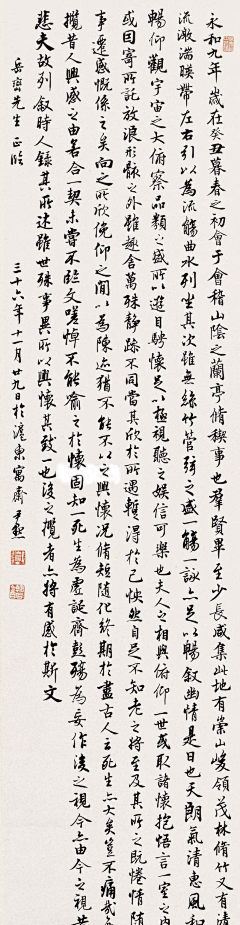 永和九年歲在癸丑暮春之初會于會稽山陰之蘭亭脩稧事也羣賢畢至少長咸集此地有崇山峻領茂林脩竹又有清
流激湍暎帶左右引以為流觴曲水列坐其次雖無絲竹管弦之盛一觴一詠亦足以暢敘幽情是日也天朗氣清惠風和
暢仰觀宇宙之大俯察品類之盛所以遊目騁懷足以極視聽之娛信可樂也夫人之相與俯仰一世或取諸懷抱悟言一室之內
或因寄所託放浪形骸之外雖趣舍萬殊靜躁不同當其欣於所遇蹔得於己怏然自足不知老之將至及其所之既惓情隨
事遷感慨係之矣向之所欣俛仰之間以為陳迹猶不能不以之興懷況脩短隨化終期於盡古人云死生亦大矣豈不痛哉每
攬昔人興感之由若合一契未嘗不臨文嗟悼不能喻之於懷固知一死生為虛誕齊彭殤為妄作後之視今亦由今之視昔
悲夫故列敘時人錄其所述雖世殊事異所以興懷其致一也後之攬者亦將有感於斯文
先生正
三十六年十一月廿九日於滬東寓齋尹默